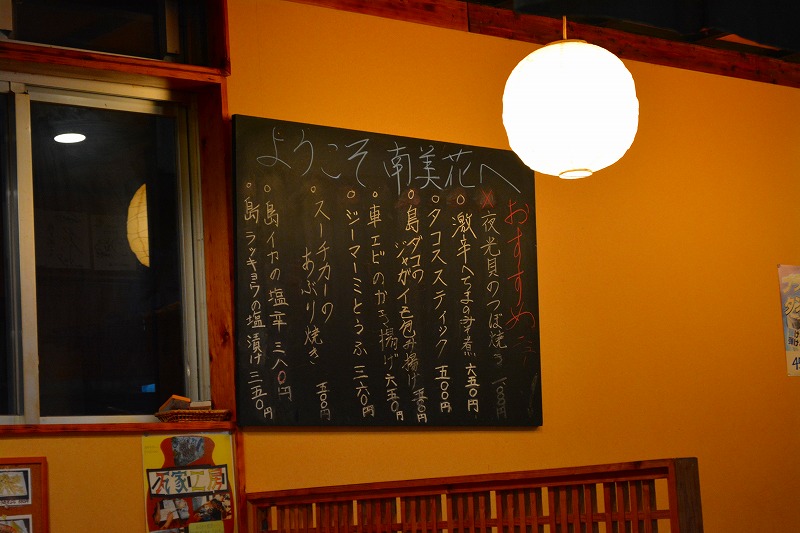 ようこそ 南美花へ
おすすめ
×夜光貝のつぼ焼き 一、〇〇〇円
○激辛へちまのみそ煮 六五〇円
○タコススティック 五〇〇円
○島ダコの
ジャガイモ包み揚げ 五五〇円
○車エビのから揚げ 六五〇円
○ジーマーミとうふ 三六〇円
○スーチカーの
あぶり焼き 五五〇円
○島イカの塩辛 三八〇円
○島ラッキョウの塩漬け 三五〇円
家工房